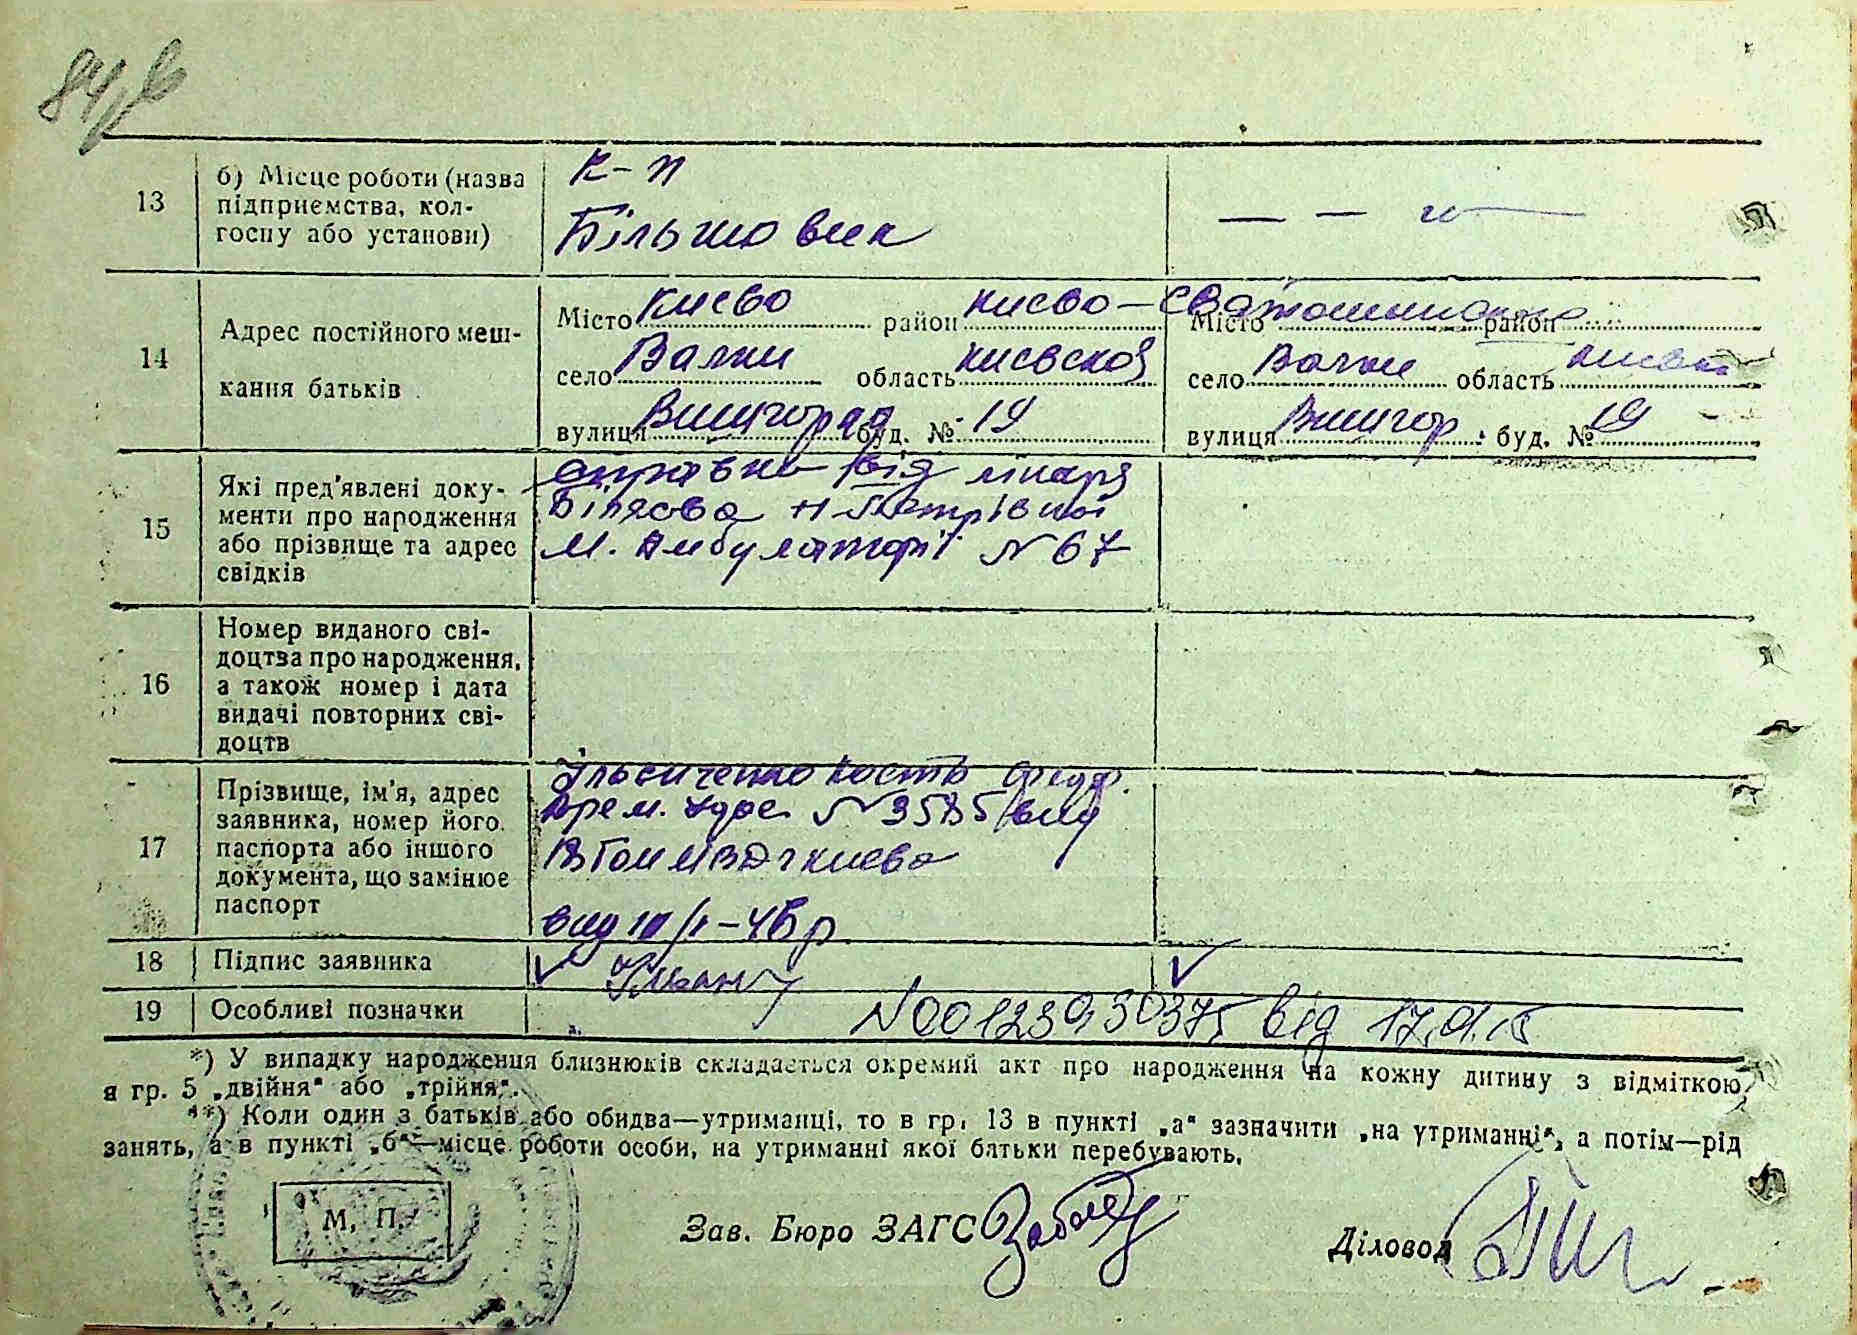 84
13
б) Місце роботи (назва
підприємства, кол-
госпу або установи)
к-п
Більшовик
14
Адрес постійного меш-
кання батьків
Місто Києво район Києво-Святошинского
село Валки область Киевской
вулиця Вишгород буд. № 19
Місто район
село Валки область
вулиця Вишгор буд. № 19
15
Які пред'явлені доку-
менти про народження
або прізвище та адрес
свідків
справка від лікаря
Н-Петрівної
М. Амбулаторії № 67
16
Номер виданого сві-
доцтва про народження,
а також номер і дата
видачі повторних сві-
доцтв
17
Прізвище, ім'я, адрес
заявника, номер його
паспорта або іншого
документа, що замінює
паспорт
Кость
№ 3585 вид
Киева
вид
18
Підпис заявника
19
Особливі позначки
N00123930375 від 17.01.15
*) У випадку народження близнюків складається окремий акт про народження на кожну дитину з відміткою
в гр. 5 „двійня“ або „трійня“.
**) Коли один з батьків або обидва—утриманці, то в гр. 13 в пункті „а“ зазначити „на утриманні“, а потім—рід
занять, а в пункті „б“—місце роботи особи, на утриманні якої батьки перебувають.
М. П.
Зав. Бюро ЗАГС
Діловод